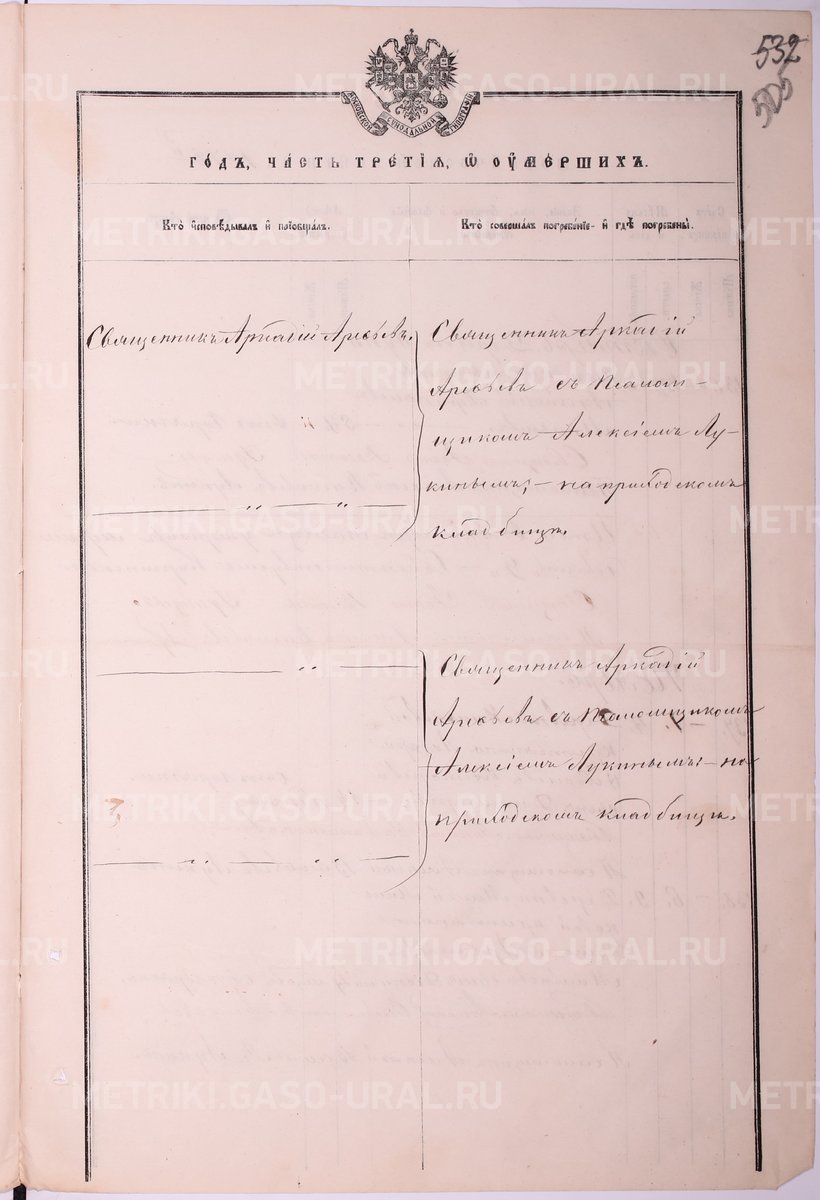 532
505
МОСКОВСКОЙ СѴНОДАЛЬНОЙ ТИПОГРАФІИ
ГОДЪ, ЧАСТЬ ТРЕТІЯ, Ѡ ОУМЕРШИХЪ.
Кто исповѣдывалъ и пріобщалъ.
Кто совершалъ погребеніе и гдѣ погребены.
Священникъ Аркадій Арефьевъ.
Священникъ Аркадій
Арефьевъ съ Псаломщикомъ
щикомъ Алексіемъ Лу-
кинымъ, - на приходскомъ
кладбищѣ.
Священникъ Аркадій
Арефьевъ съ Псаломщикомъ
Алексіемъ Лукинымъ: - на
приходскомъ кладбищѣ.
METRIKI.GASO-URAL.RU